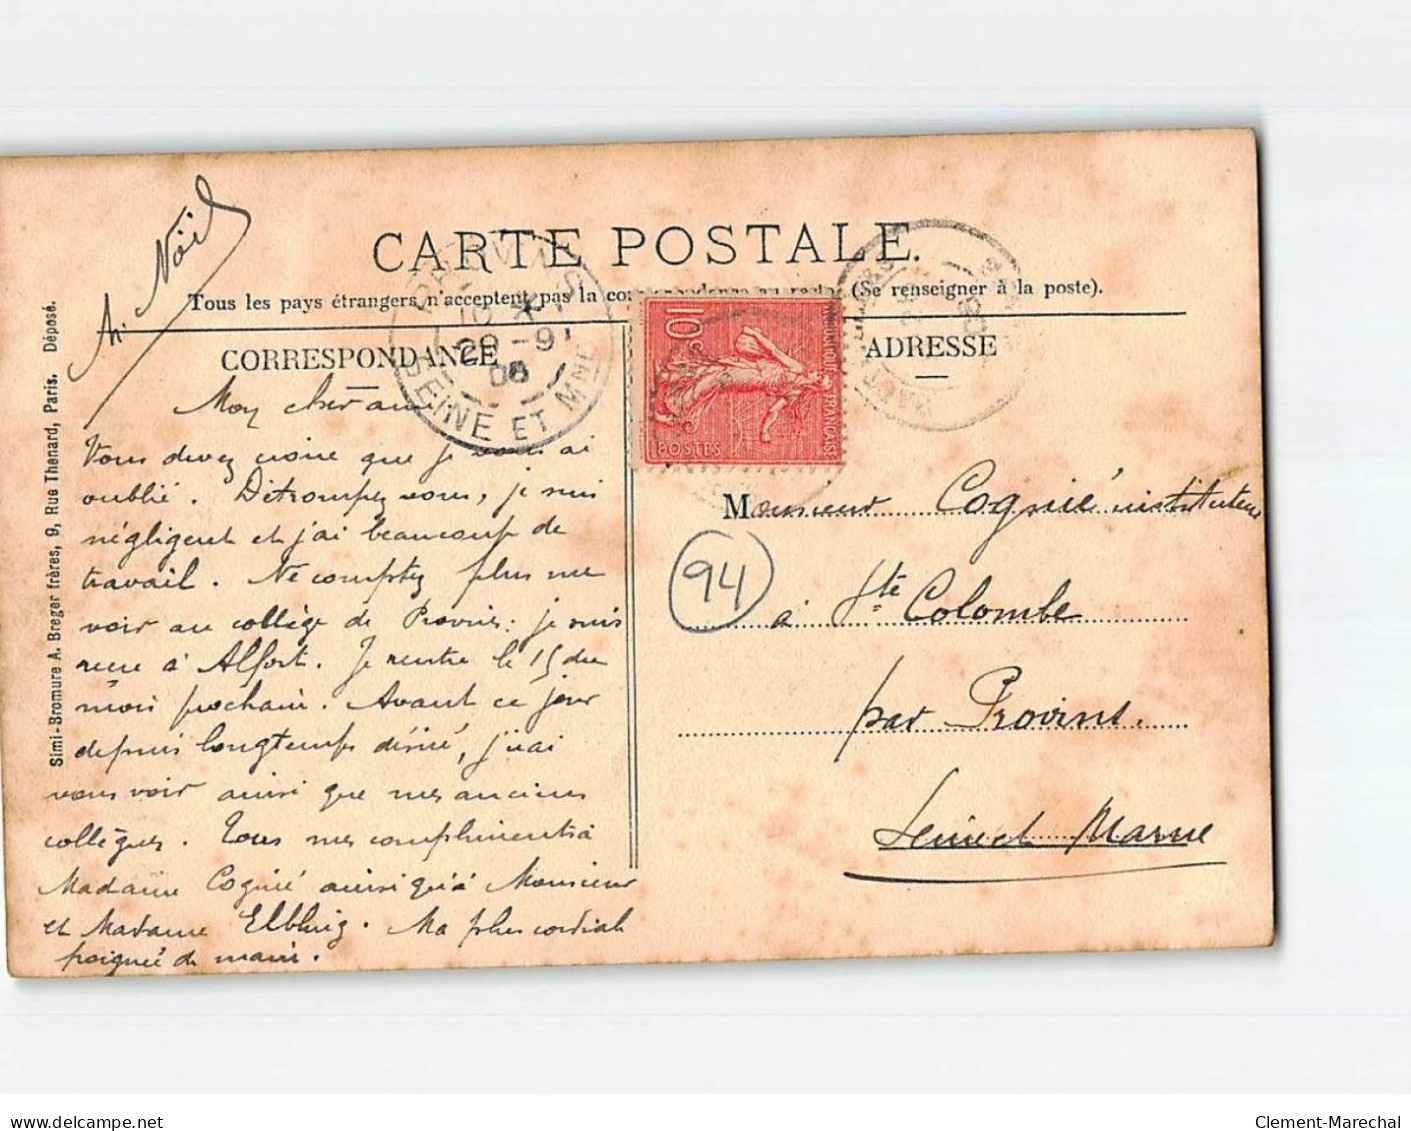 A. Noël
CARTE POSTALE.
Tous les pays étrangers n'acceptent pas la correspondance au recto. (Se renseigner à la poste).
CORRESPONDANCE
ADRESSE
PROVINS
10
29 - 9
06
SEINE ET MNE
10c
REPUBLIQUE FRANÇAISE
POSTES
Simi-Bromure A. Breger frères, 9, Rue Thenard, Paris. Déposé.
Mon cher ami
Vous devez croire que je vous ai
oublié. Détrompez vous, je suis
négligent et j'ai beaucoup de
travail. Ne comptez plus me
voir au collège de Provins: je suis
reçu à Alfort. Je rentre le 15 du
mois prochain. Avant ce jour
depuis longtemps désiré, j'irai
vous voir ainsi que mes anciens
collègues. Tous mes compliments à
Madame Cognié ainsi qu'à Monsieur
et Madame
. Ma plus cordiale
poignée de main.
Monsieur Cognié instituteur
94
à Ste Colombe
par Provins.
Seine et Marne
www.delcampe.net
Clement-Marechal